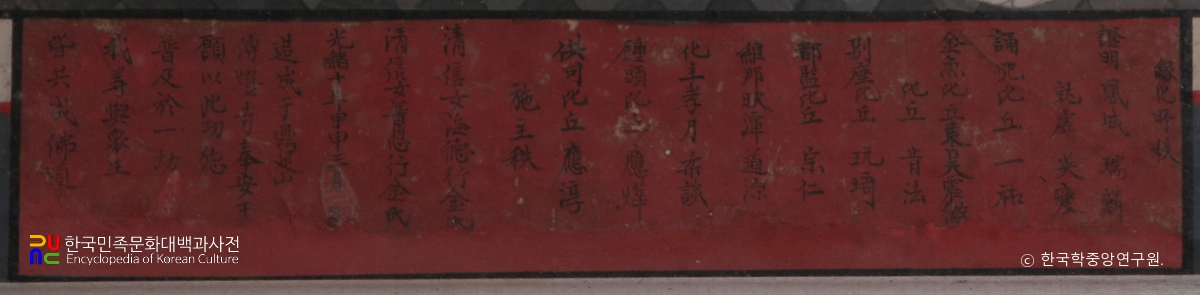 緣化所秩
證明 鳳城 瑞麟
誦呪比丘 一祐
金魚比丘東昊震徹
比丘 肯法
別座比丘 玩琦
都監比丘 宗仁
維那映潭 道源
化主孝月 奈談
鍾頭比丘 應燁
供司比丘 應淳
施主秩
清信女海德行金氏
清信女普德行金氏
光緖十年甲申三月
造成于
傳燈寺奉安于
願以此功德
普及於一切
我等與眾生
皆共成佛道
한국민족문화대백과사전
Encyclopedia of Korean Culture
ⓒ 한국학중앙연구원.